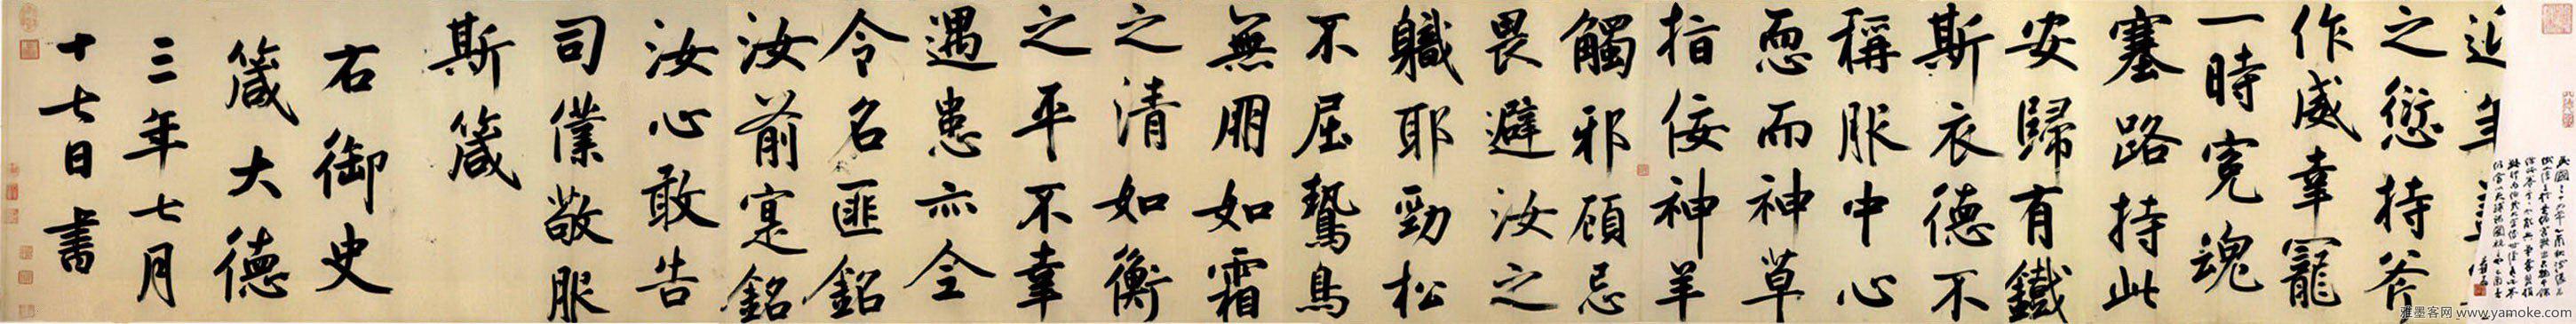 近年
之愆持斧
作威幸寵
一時寃魂
塞路持此
安歸有鐵
斯衣德不
稱服中心
恧而神草
指佞神羊
觸邪顧忌
畏避汝之
軄耶勁松
不屈鷙鳥
無朋如霜
之清如衡
之平不幸
遇患亦令
令名匪銘
汝前寔銘
汝心敢告
司僕敬服
斯箴
右御史
箴大德
三年七月
十七日書
雅墨客网 www.yamoke.com